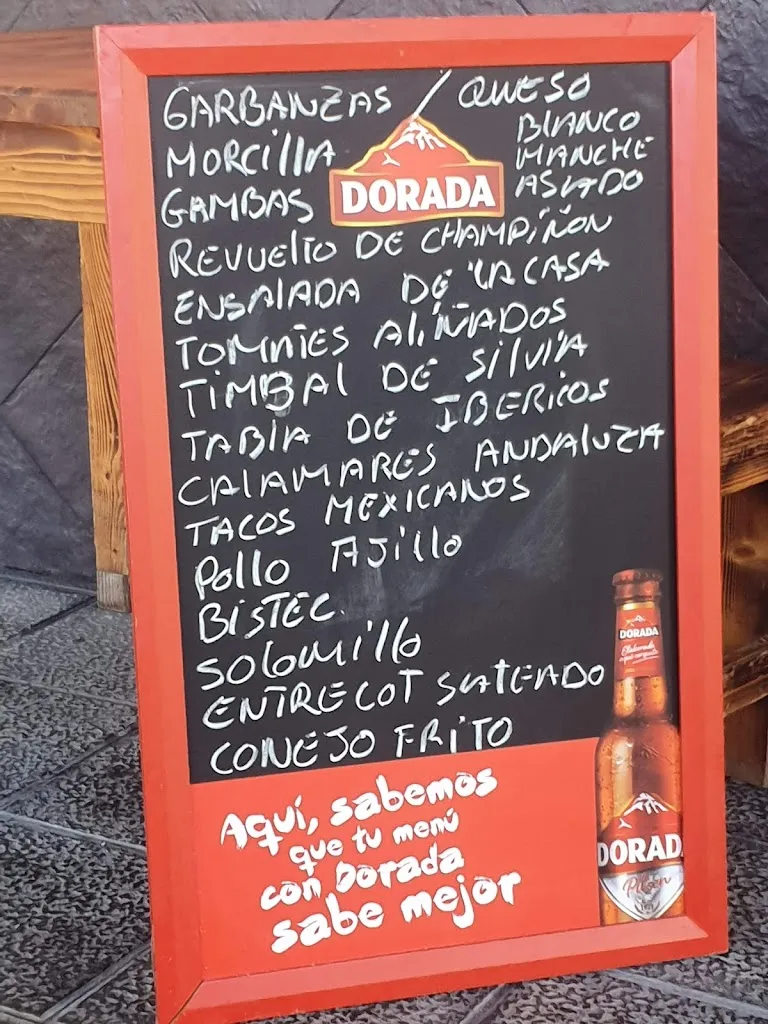 GARBANZAS / QUESO
BIANCO
MORCIllA
MANCHE
GAMBAS
ASADO
DORADA
REVUElTO DE CHAMPiÑON
ENSAlADA DE LA CASA
TOMATES AliÑADOS
TiMBAl DE SilViA
TABlA DE IBERiCOS
CAlAMARES ANDAlUZA
TACOS MEXICANOS
Pollo AJillo
BiSTEC.
SOloMillo
ENTRECOT SALTEADO
CONEJO FRiTO
DORADA
Aquí, sabemos
que tu menú
con Dorada
sabe mejor
DORADA
Pilsen